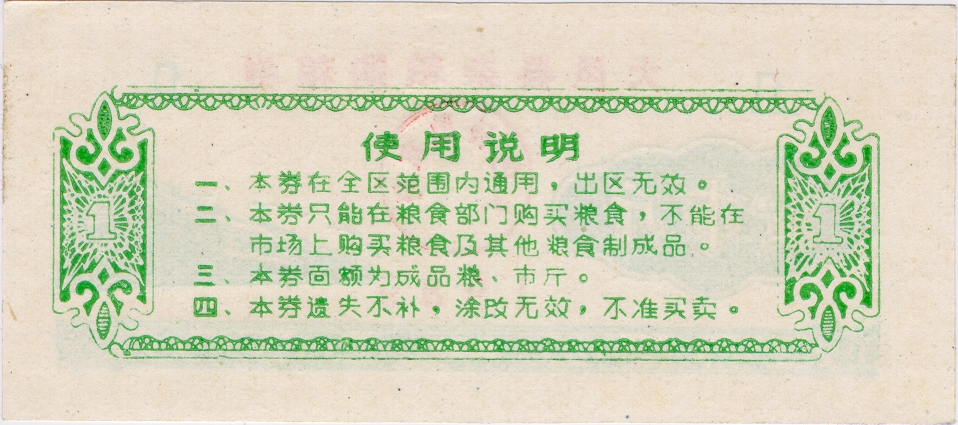 使用说明
一、本券在全区范围内通用，出区无效。
二、本券只能在粮食部门购买粮食，不能在
市场上购买粮食及其他粮食制成品。
三、本券面额为成品粮、市斤。
四、本券遗失不补，涂改无效，不准买卖。
1
1